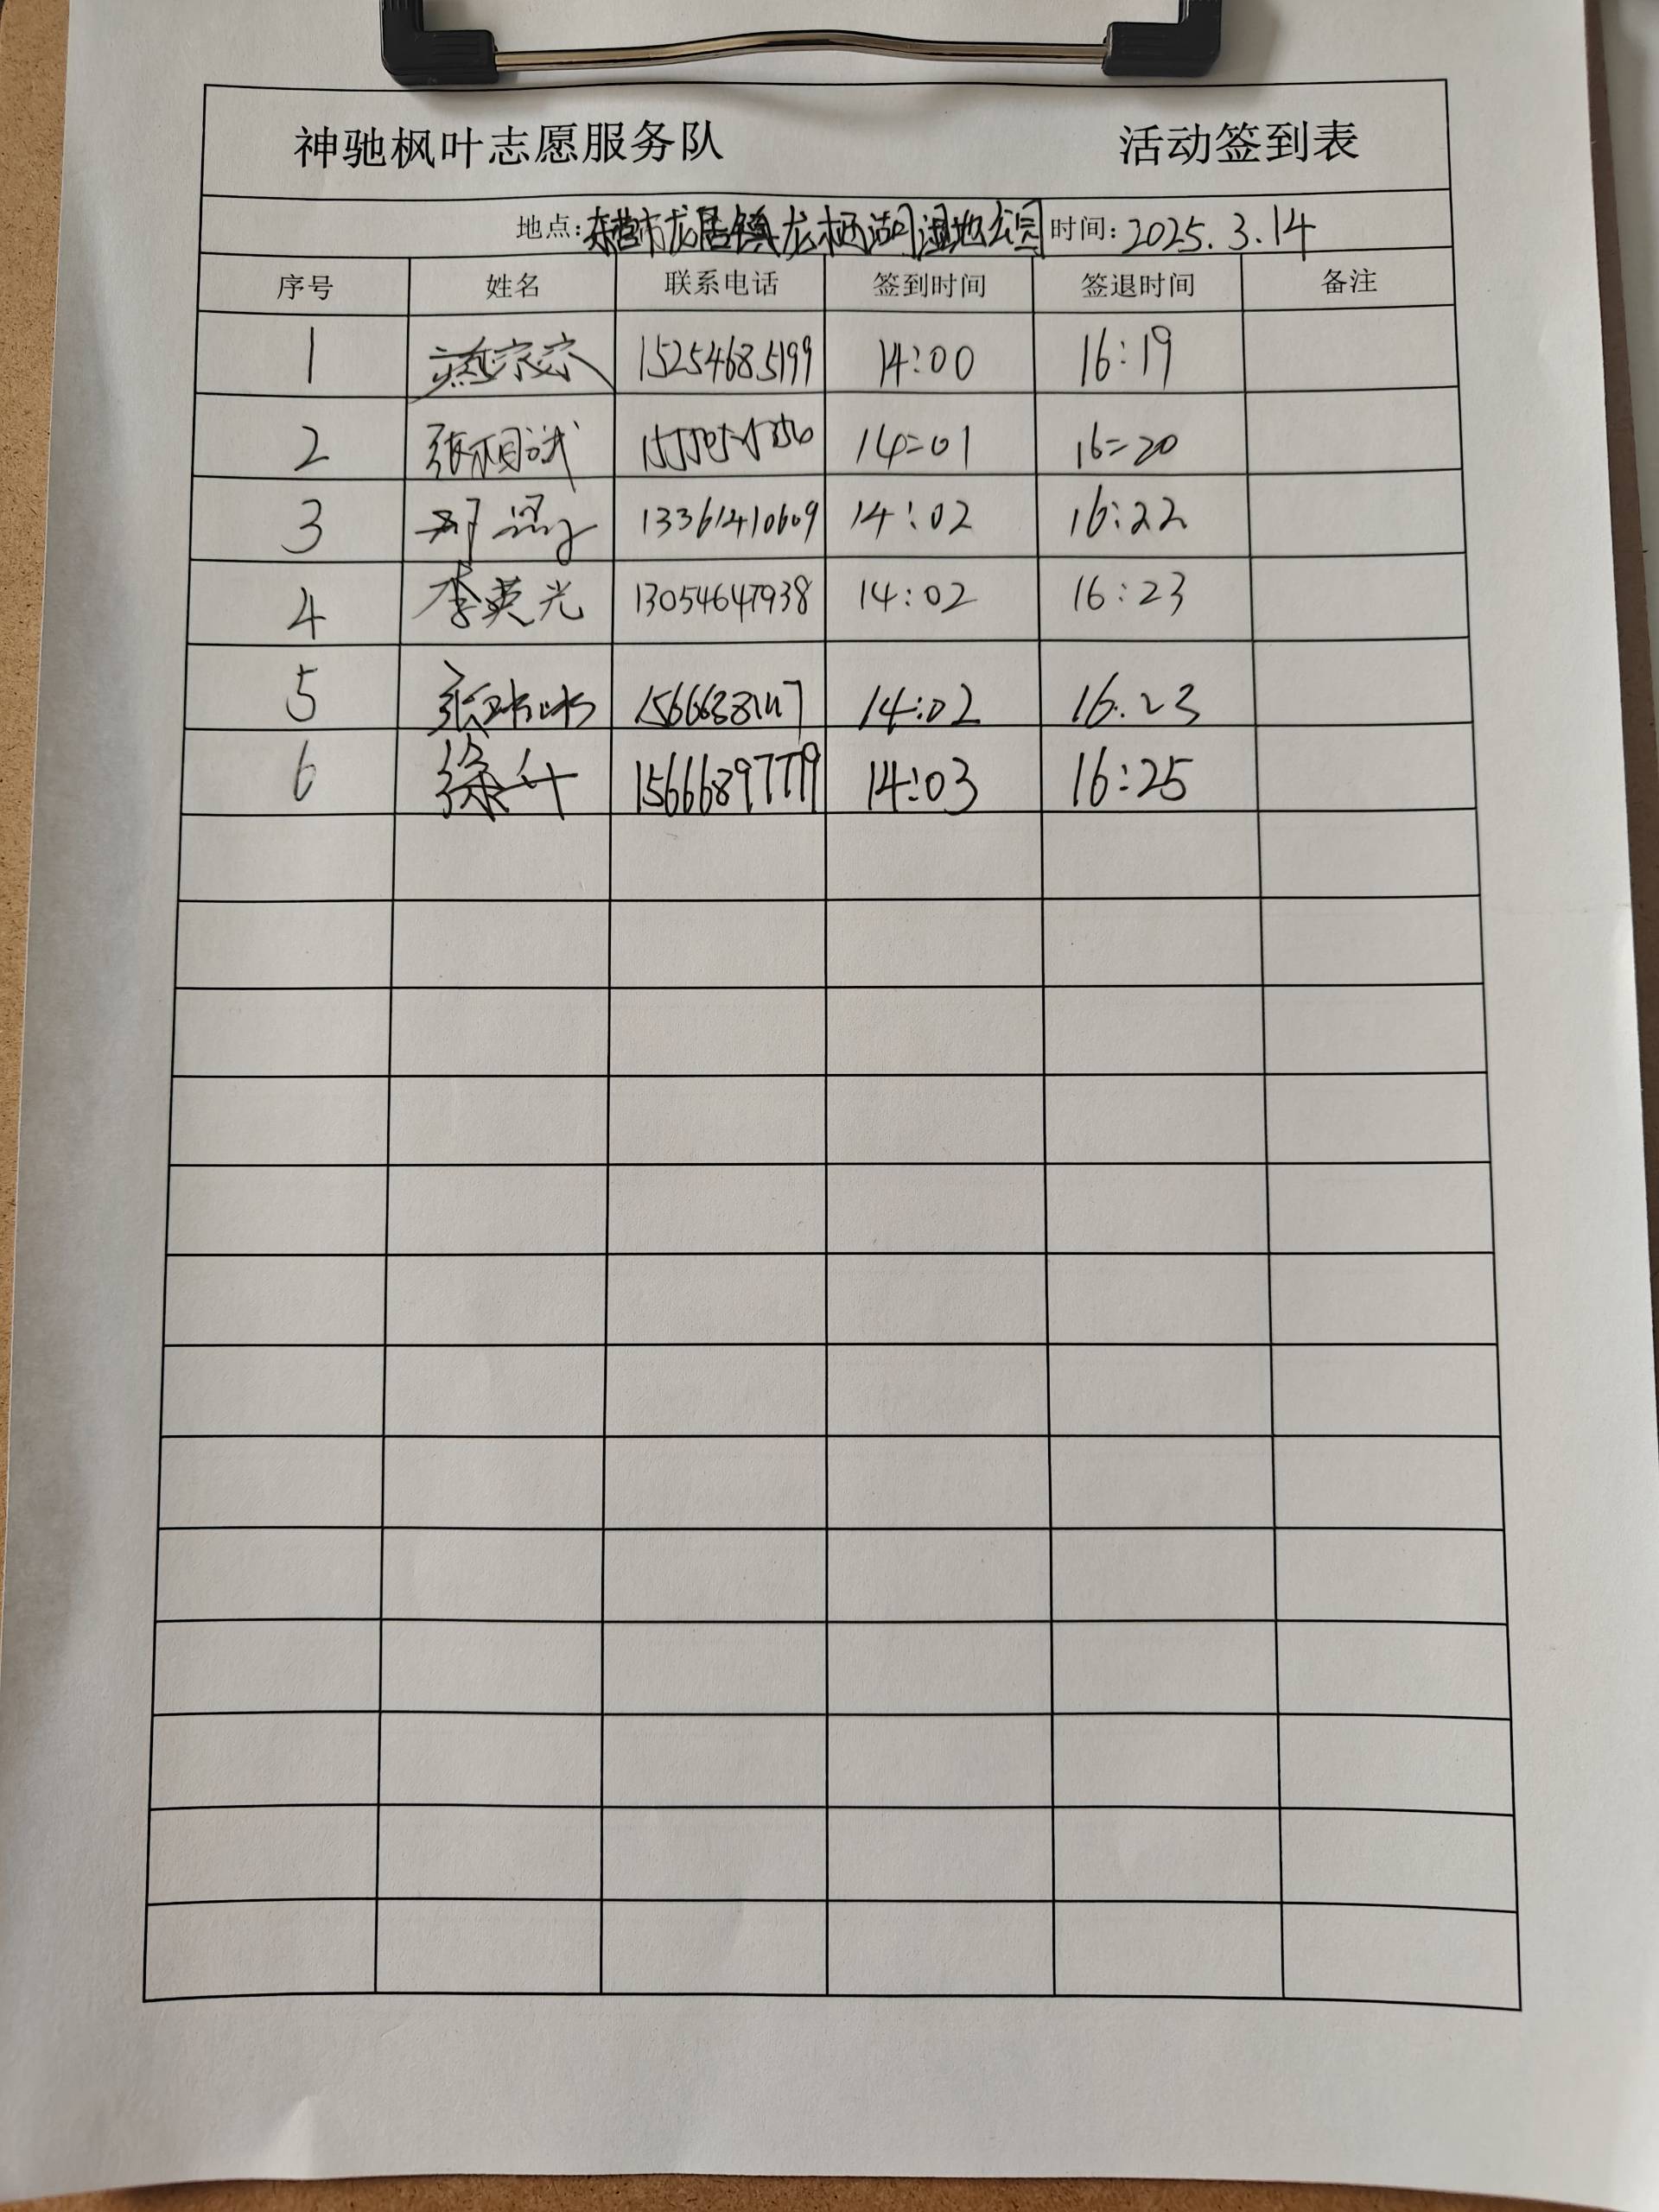 神驰枫叶志愿服务队 活动签到表
地点:东营市龙居镇龙栖湖湿地公园 时间: 2025.3.14
序号 姓名 联系电话 签到时间 签退时间 备注
1 15254685199 14:00 16:19
2 张 14=01 16=20
3 13361410609 14:02 16:22
4 李英光 13054647938 14:02 16:23
5 张 14:02 16.23
6 徐叶 15666897779 14:03 16:25